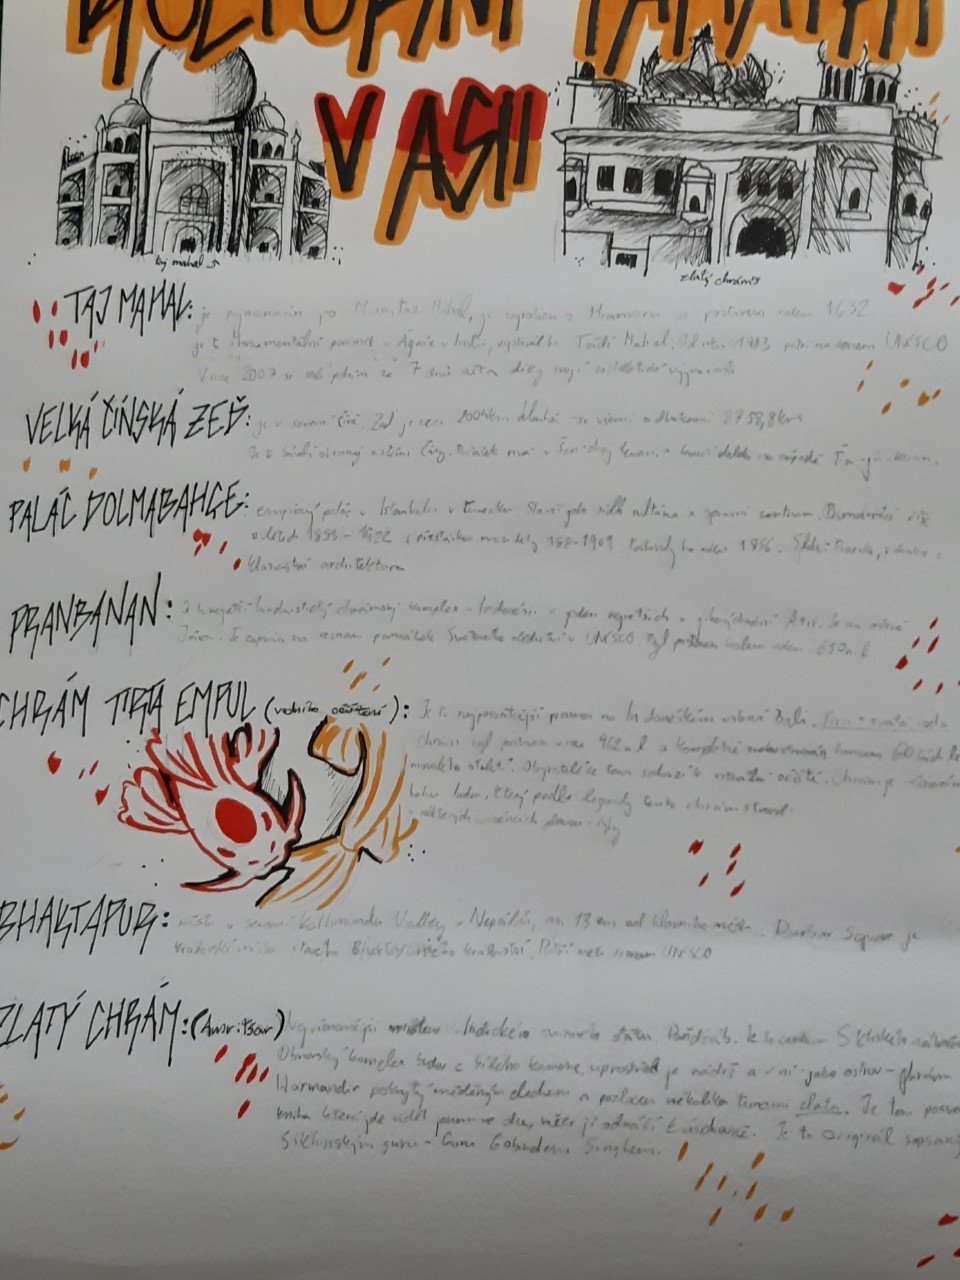 KULTURNÍ PAMÁTKY
V ASII
taj mahal
zlatý chrám
TAJ MAHAL: je pojmenován po Mumtaz Mahal, je vyroben z Mramoru a postaven roku 1632
je to Monumentální pomník v Ágře v Indii, Od roku 1983 patří na seznam UNESCO
V roce 2007 se stal jedním ze 7 divů světa díky svojí architektické výjimečnosti
VELKÁ ČÍNSKÁ ZEĎ: je v severní Číně. Zeď je cca dlouhá se všemi odbočkami 8758,8 km
Je to
PALÁC DOLMABAHÇE: empírový palác v Istanbulu v Turecku. sídlo sultána a správní centrum.
v letech 1853 - 1922 s přestávkou mezi lety 1909 roku 1856. Baroko,
klasicistní architektura
PRANBANAN: Je to největší hinduistický chrámový komplex v Indonésii a jeden z největších v jihovýchodní Asii. Je na ostrově
Jáva. Je zapsán na seznam památek Světového dědictví v UNESCO. Byl postaven kolem roku 850 n. l
CHRÁM TIRTA EMPUL (vodního očištění): Je to nejposvátnější pramen na Indonéském ostrově Bali. svatá voda
Chrám byl postaven v roce 962 n. l a kompletně zrekonstruován koncem 60tých let
minulého století. Obyvatelé se tam schází k rituální očistě. Chrám je
bohu Indra, který podle legendy tento chrám stvořil.
v některých
BHAKTAPUR: město v Kathmandu Valley v Nepálu, asi 13 km od hlavního města. Durbar Square je
královské město starého království. Patří mezi seznam UNESCO
ZLATÝ CHRÁM: (Amritsar) Nejvýznamnější Indického státu Paňdžáb. Je to centrum Sikhského
Obrovský komplex budov z bílého kamene, uprostřed je nádrž a v ní jako ostrov - chrám
Harmandir pokrytý měděným plechem a pozlacen několika tunami zlata. Je tam
kniha která jde vidět pouze ve dne, večer ji odnáší Je to originál sepsaný
Sikhinským guru - Guru Gobindem Singhem.